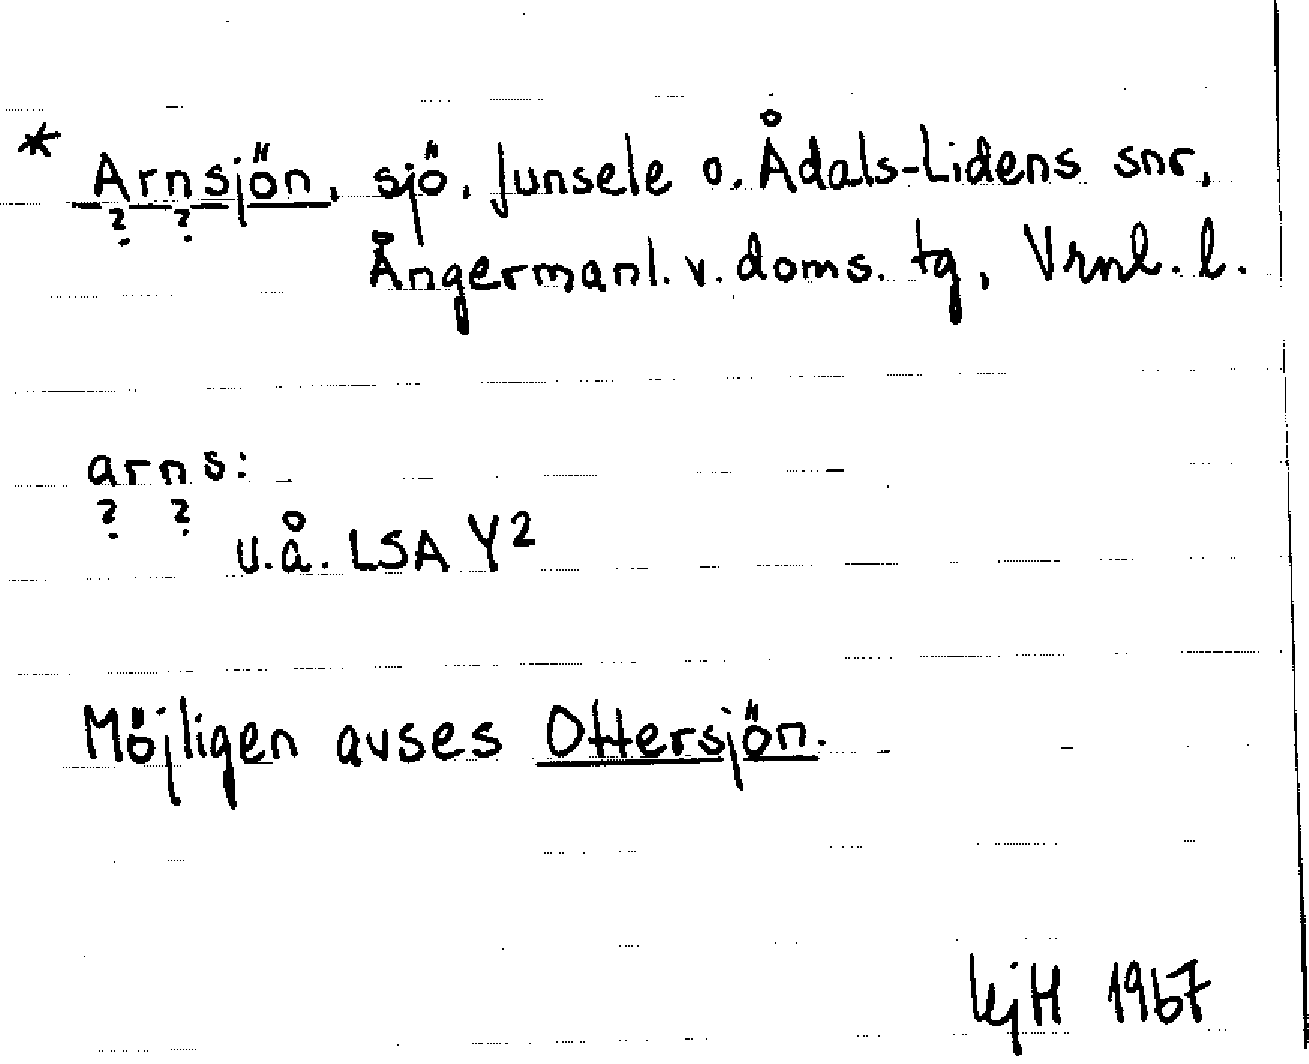 * Arnsjön, sjö, Junsele o. Ådals-Lidens snr,
? ?
Ångermanl. v. doms. tg, Vrnl. l.
arns:
? ?
u.å. LSA Y2
Möjligen avses Ottersjön.
kjH 1967